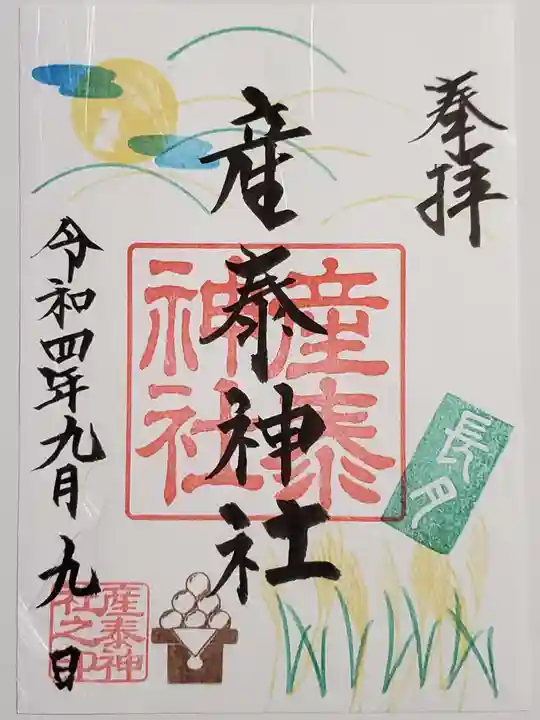 奉拝
長月
産泰神社
産泰
神社
令和四年九月九日
産泰神
社之印